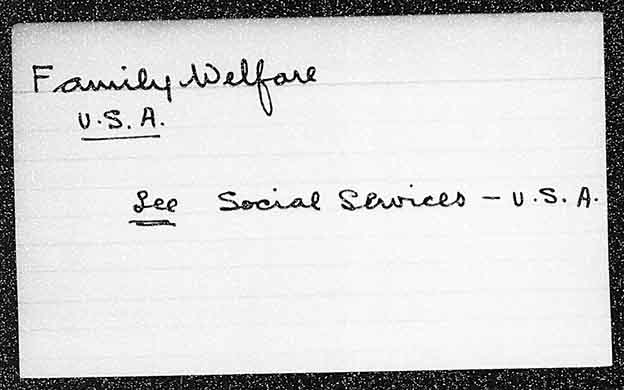 Family Welfare
U.S.A.
See Social Services - U.S.A.